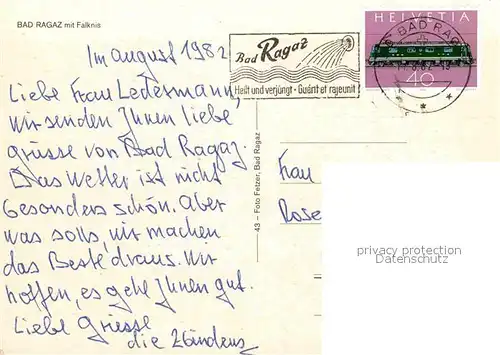 BAD RAGAZ mit Falknis
Im august 1982
Liebe Frau Ledermann,
wir senden Ihnen liebe
grüsse von Bad Ragaz.
Das Wetter ist nicht
besonders schön. Aber
was solls, wir machen
das Beste draus. Wir
hoffen, es gehe Ihnen gut.
Liebe Grüsse
die
43 – Foto Fetzer, Bad Ragaz
Bad Ragaz
Heilt und verjüngt · Guérit et rajeunit
HELVETIA
40
BAD RAGAZ
Frau
Rose
privacy protection
Datenschutz